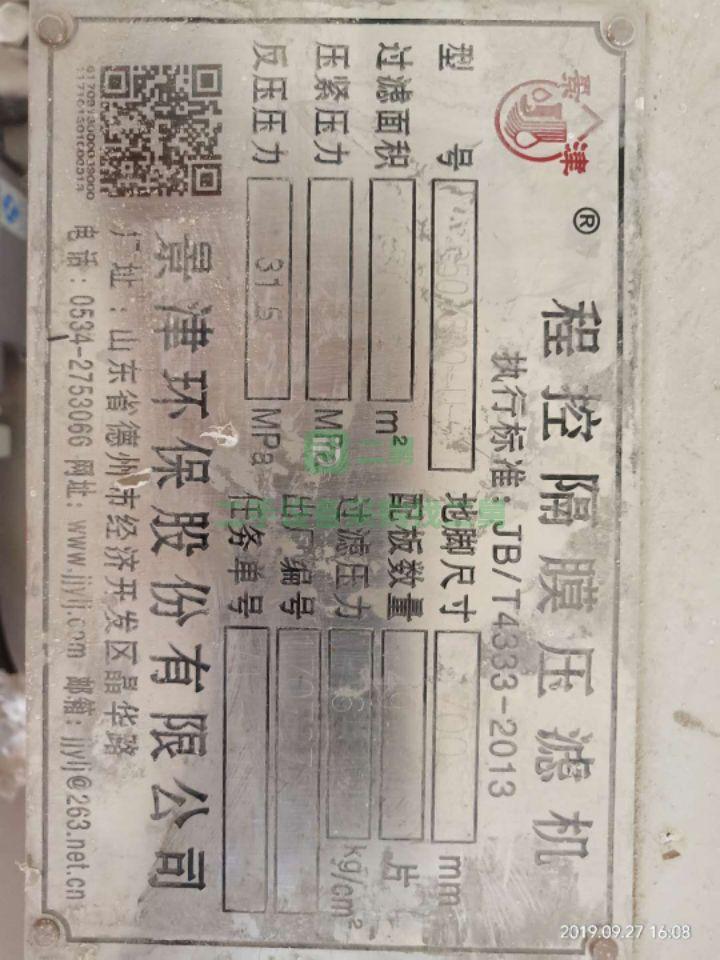 景津
®
程控隔膜压滤机
执行标准：JB/T4333-2013
型号
地脚尺寸 mm
过滤面积 m²
配板数量 片
压紧压力 MPa
过滤压力 kg/cm²
反压压力 31.5 MPa
出厂编号
任务单号
景津环保股份有限公司
厂址：山东省德州市经济开发区晶华路
电话：0534-2753066 网址：www.jjylj.com 邮箱：jjylj@263.net.cn
2019.09.27 16:08